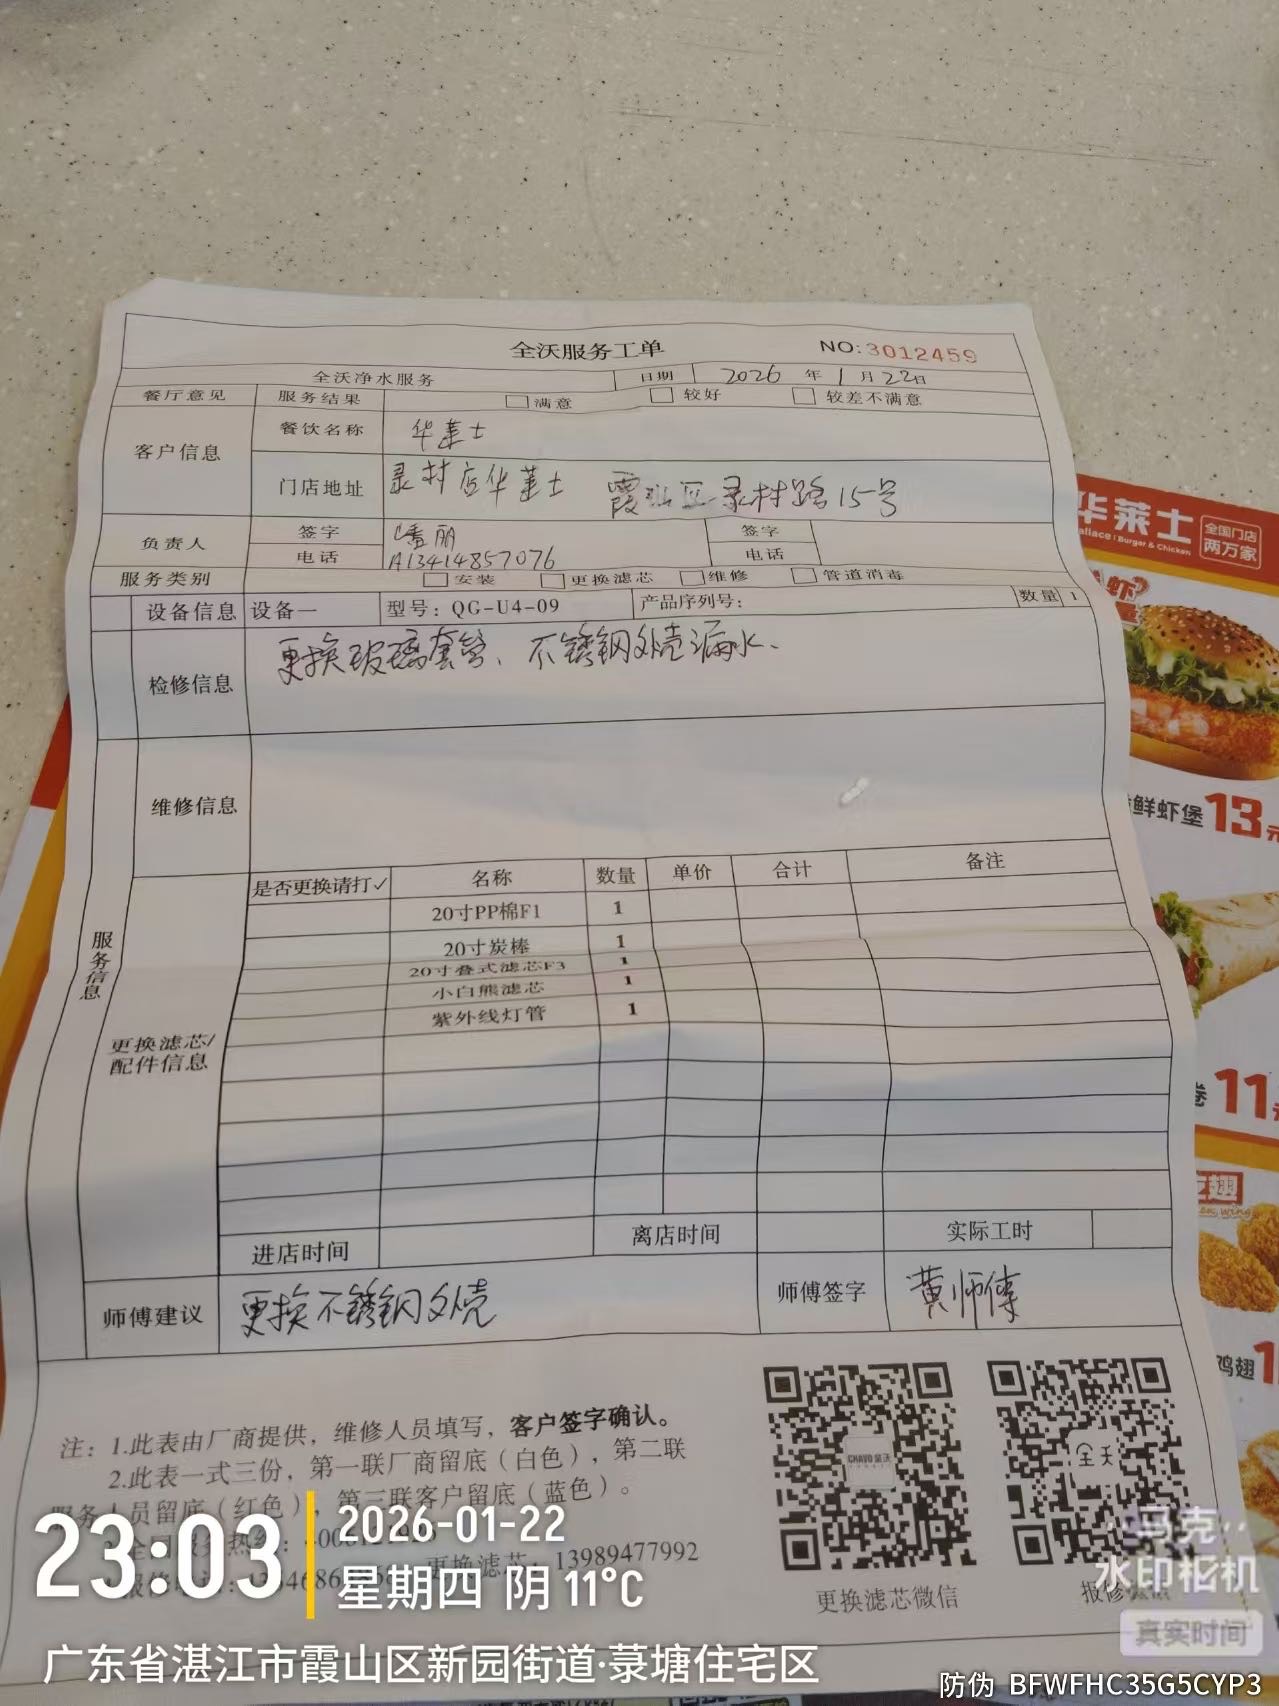 全沃服务工单 NO:3012459
全沃净水服务 日期 2026 年 1 月 22日
餐厅意见 服务结果 满意 较好 较差不满意
客户信息 餐饮名称 华莱士
门店地址 录村店华莱士 霞山区录村路15号
负责人 签字 潘丽 签字
电话 A13414857076 电话
服务类别 安装 更换滤芯 维修 管道消毒
设备信息 设备一 型号：QG-U4-09 产品序列号： 数量 1
检修信息 更换玻璃套管、不锈钢外壳漏水、
维修信息
服务信息
是否更换请打✓ 名称 数量 单价 合计 备注
20寸PP棉F1 1
20寸炭棒 1
20寸叠式滤芯F3 1
小白熊滤芯 1
紫外线灯管 1
更换滤芯/
配件信息
进店时间 离店时间 实际工时
师傅建议 更换不锈钢外壳 师傅签字 黄师傅
注：1.此表由厂商提供，维修人员填写，客户签字确认。
2.此表一式三份，第一联厂商留底（白色），第二联
服务人员留底（红色），第三联客户留底（蓝色）。
更换滤芯：13989477992
CHAVO 全沃
全沃
更换滤芯微信
报修
华莱士
Wallace | Burger & Chicken
全国门店
两万家
虾
鲜虾堡 13元
卷 11
翅
鸡翅 1
23:03
2026-01-22
星期四 阴 11°C
广东省湛江市霞山区新园街道·菉塘住宅区
马克
水印相机
真实时间
防伪 BFWFHC35G5CYP3